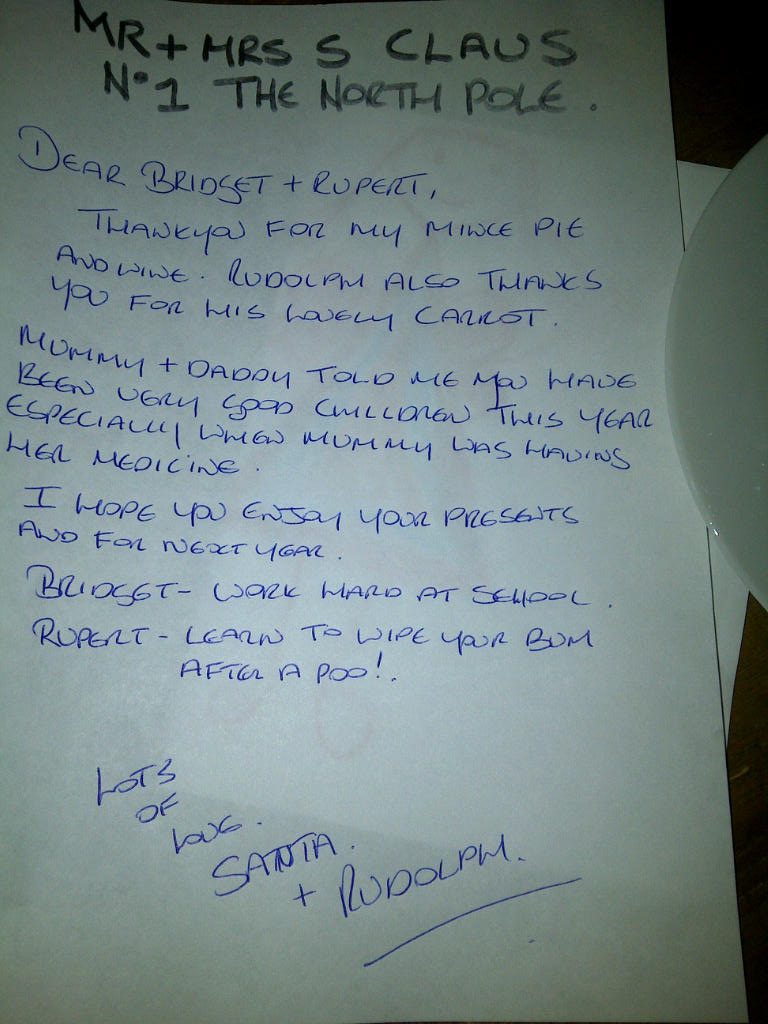 MR + MRS S CLAUS
No1 THE NORTH POLE.
DEAR BRIDGET + RUPERT,
THANKYOU FOR MY MINCE PIE
AND WINE. RUDOLPH ALSO THANKS
YOU FOR HIS LOVELY CARROT.
MUMMY + DADDY TOLD ME YOU HAVE
BEEN VERY GOOD CHILLDREN THIS YEAR
ESPECIALLY WHEN MUMMY WAS HAVING
HER MEDICINE.
I HOPE YOU ENJOY YOUR PRESENTS
AND FOR NEXT YEAR.
BRIDGET - WORK HARD AT SCHOOL.
RUPERT - LEARN TO WIPE YOUR BUM
AFTER A POO!.
LOTS
OF
LOVE.
SANTA.
+ RUDOLPH.